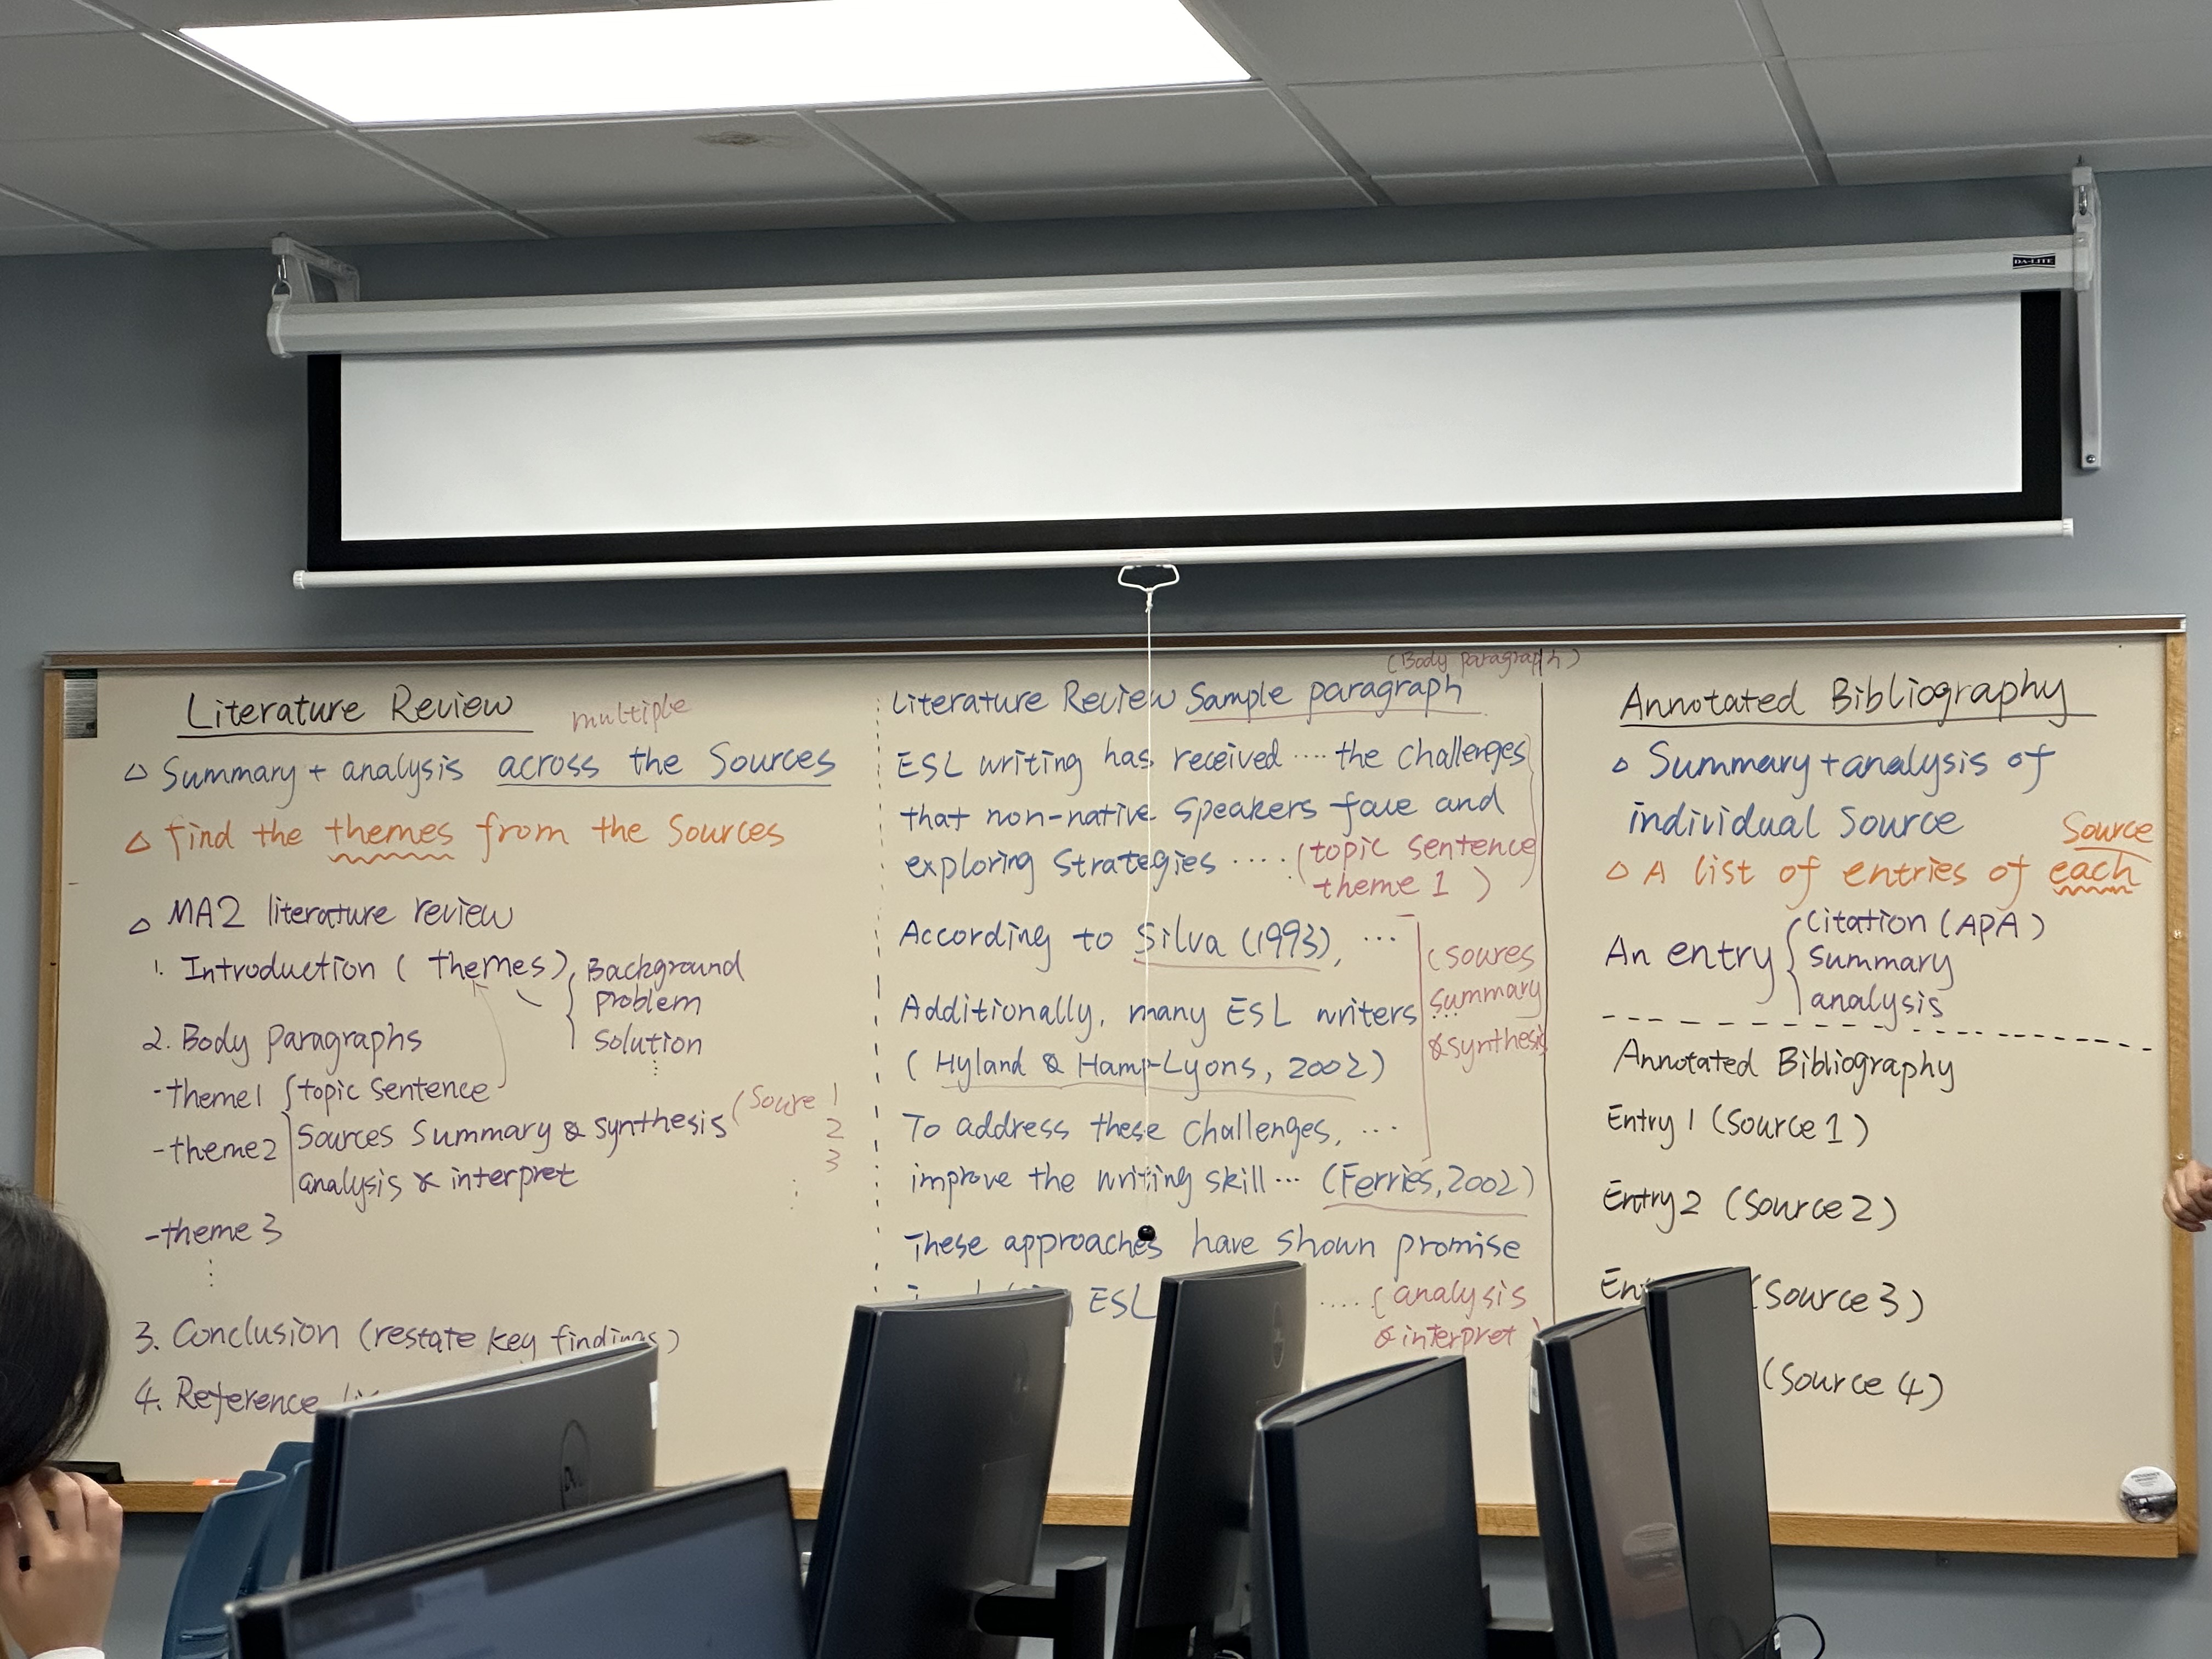 DA-LITE
Literature Review
multiple
△ Summary + analysis across the Sources
△ find the themes from the Sources
△ MA2 literature review
1. Introduction ( themes ) { Background
problem
solution
⋮
2. Body paragraphs
-theme1 { topic sentence
-theme2 Sources Summary & synthesis ( Soure 1
2
3
⋮
analysis & interpret
-theme 3
⋮
3. Conclusion (restate key findings)
4. Reference
(Body paragraph)
Literature Review Sample paragraph
ESL writing has received .... the challenges
that non-native speakers face and
exploring strategies .... (topic sentence
theme 1 )
According to Silva (1993), ...
Additionally, many ESL writers
( Hyland & Hamp-Lyons, 2002)
(soures
summary
& synthesis
To address these challenges, ...
improve the writing skill... (Ferries, 2002)
These approaches have shown promise
ESL .... ( analysis
& interpret )
Annotated Bibliography
△ Summary + analysis of
individual Source
△ A list of entries of each Source
An entry { Citation (APA)
summary
analysis
Annotated Bibliography
Entry 1 (Source 1)
Entry 2 (Source 2)
(Source 3)
(Source 4)